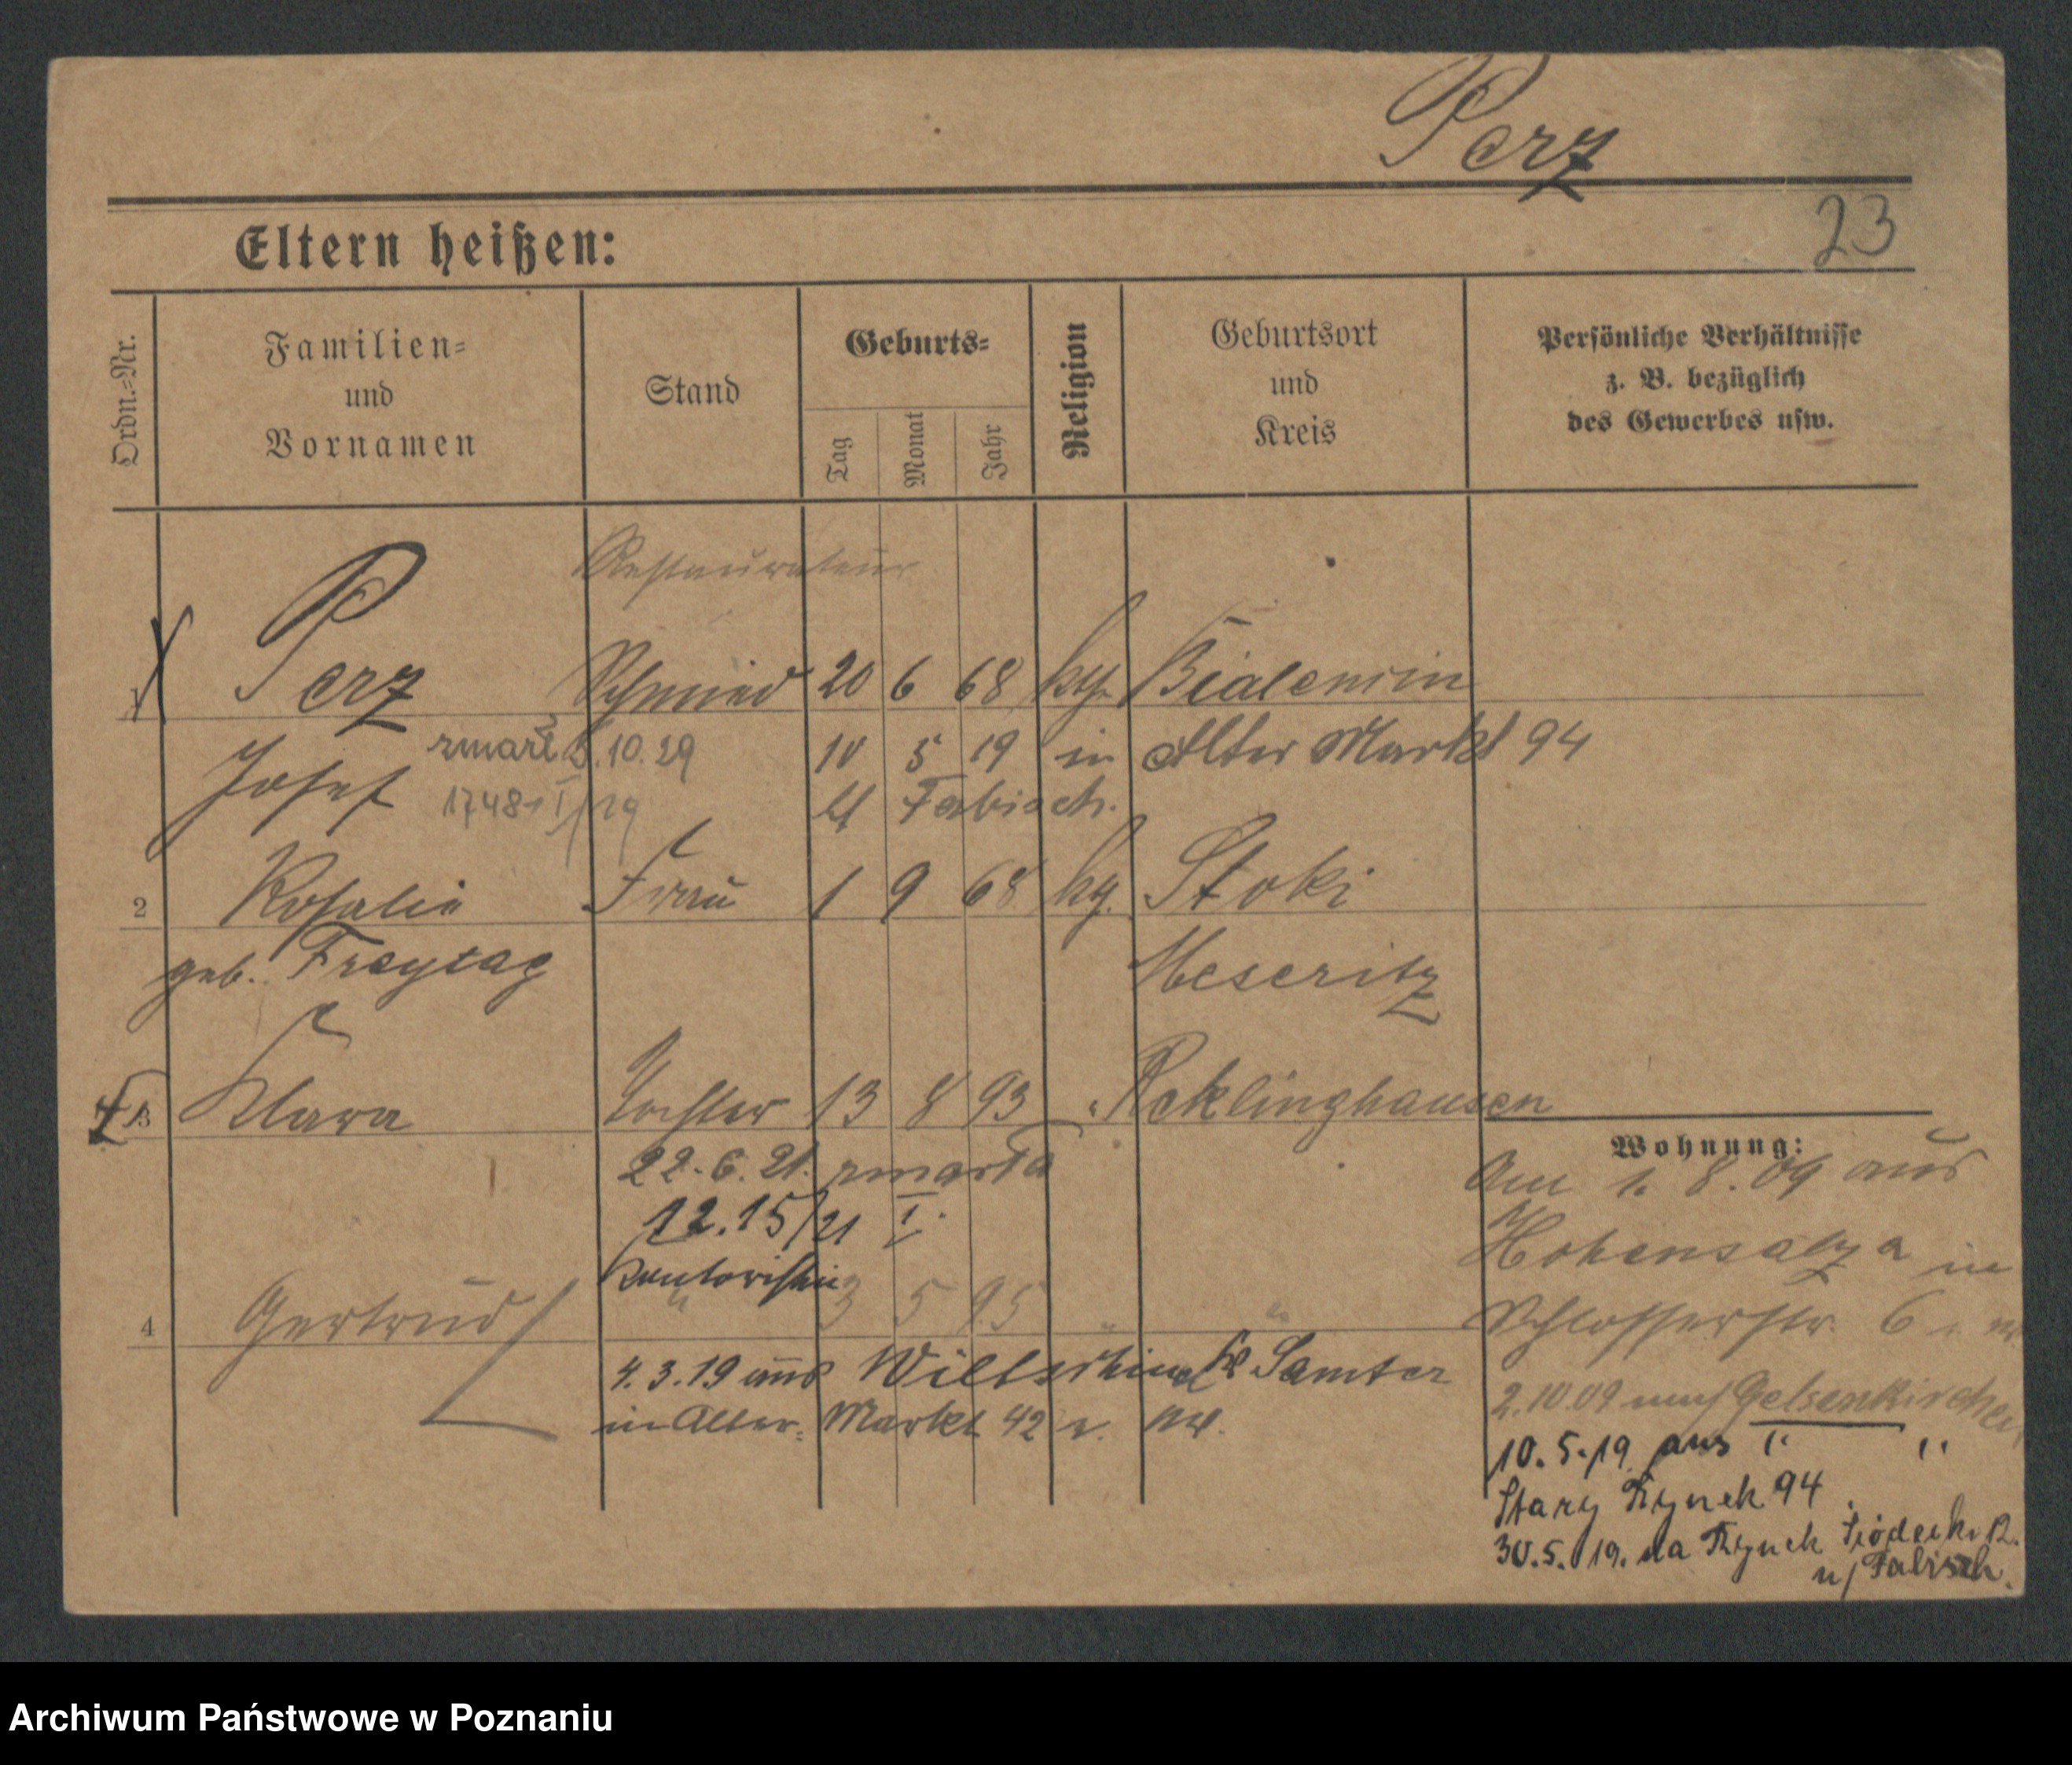 Perz
23
Eltern heißen:
Ordn.=Nr.
Familien=
und
Vornamen
Stand
Geburts=
Tag
Monat
Jahr
Religion
Geburtsort
und
Kreis
Persönliche Verhältnisse
z. B. bezüglich
des Gewerbes usw.
Restaurateur
1 Perz Schmied 20 6 68 kth. Bialenzin
Josef zmarł 5.10.29 10 5 19 in Alter Markt 94
Fabisch.
2 Rosalie Frau 1 9 68 Stoki
geb. Freytag Meseritz
3 Klara Tochter 13 8 93 " Recklinghausen
22.6.21. zmarła
12.15/21 I.
Kontoristin
4 Gertrud " 3 5 95 " "
4.3.19 aus Samter
in Alter Markt 42
Wohnung:
Am 1. 8. 09 aus
Hohensalza in
Schlosserstr. 6
2.10.09 nach Gelsenkirchen
10.5.19. aus " "
Stary Rynek 94
30.5.19. na Rynek Śródecki 12.
u/ Fabisch.
Archiwum Państwowe w Poznaniu